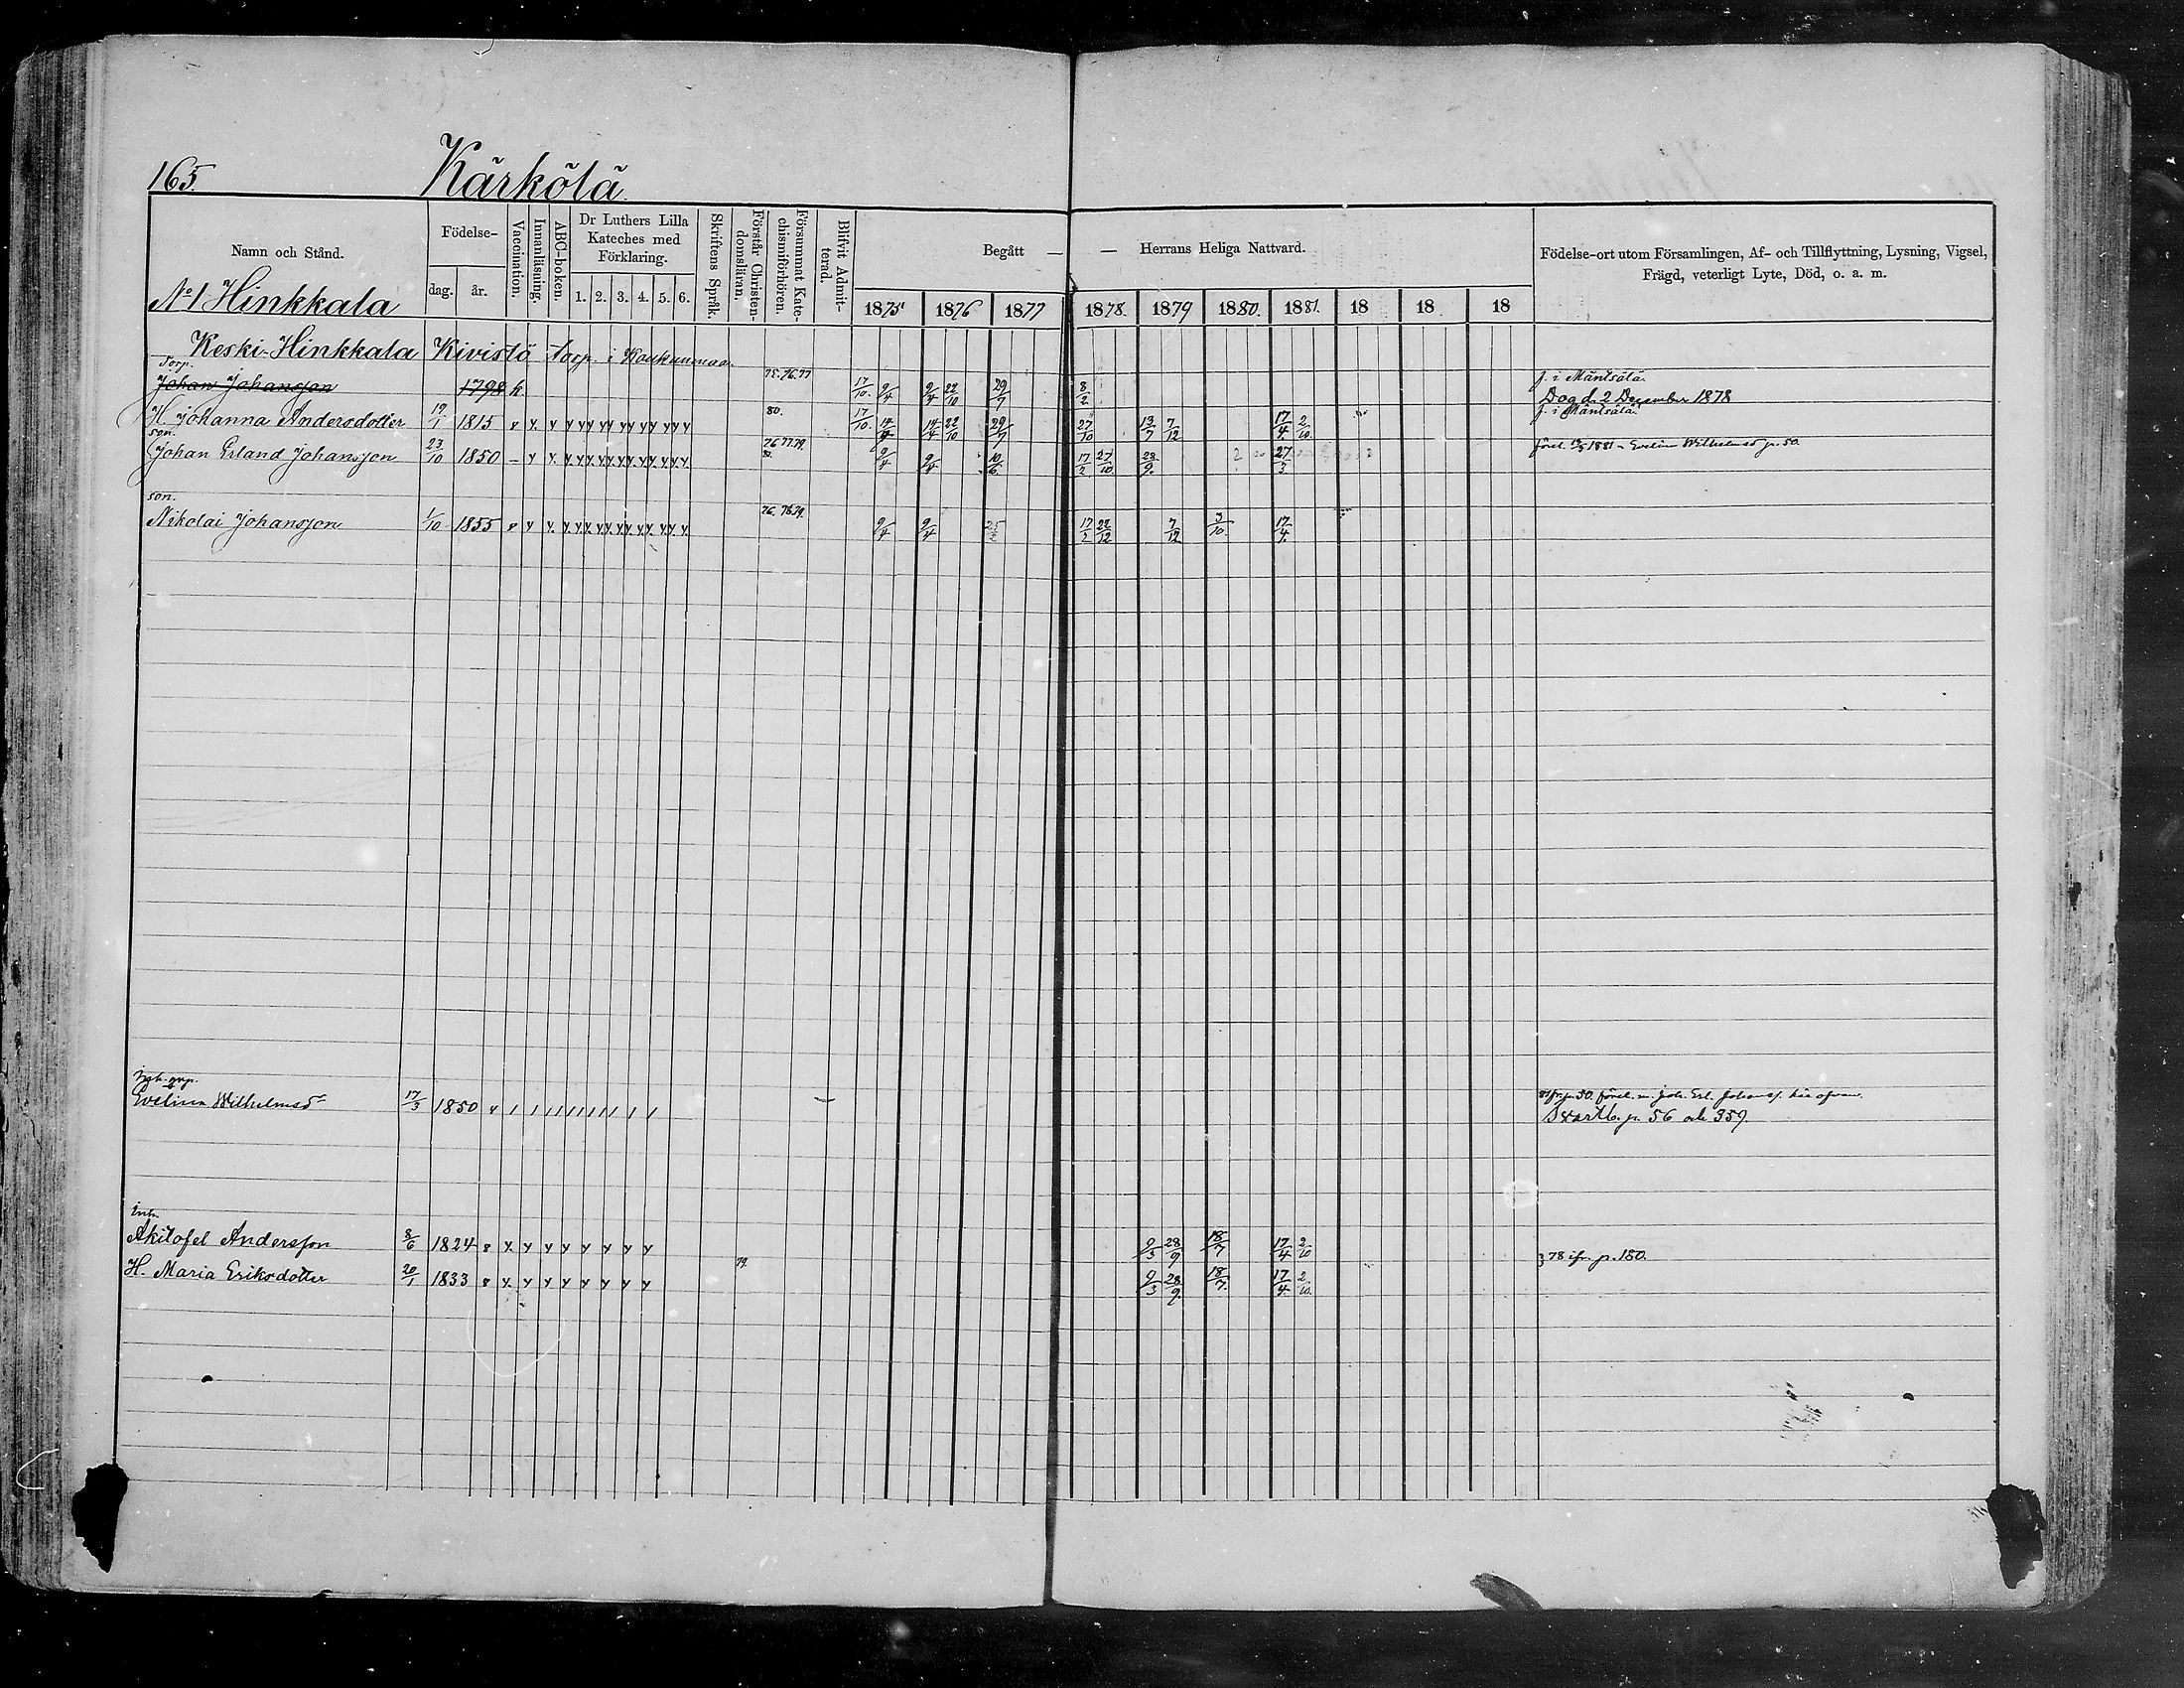 165.
Kärkölä.
Namn och Stånd.
Födelse-
dag.
år.
Vaccination.
Innanläsning.
ABC-boken.
Dr Luthers Lilla
Kateches med
Förklaring.
1. 2. 3. 4. 5. 6.
Skriftens Språk.
Förstår Christen-
domsläran.
Försummat Kate-
chismiförhören.
Blifvit Admit-
terad.
Begått — — Herrans Heliga Nattvard.
1875 1876 1877 1878. 1879 1880. 1881. 18 18 18
Födelse-ort utom Församlingen, Af- och Tillflyttning, Lysning, Vigsel,
Frägd, veterligt Lyte, Död, o. a. m.
No 1 Hinkkala
Keski-Hinkkala Kivistö torp i
Torp. 75.76.77 f. i Mäntsälä
Johan Johansson 1798 k. 17/10. 9/4 9/4 22/10 29/7 8/2 Dog d. 2 December 1878
80. f. i Mäntsälä.
H. Johanna Andersdotter 19/1 1815 17/10. 14/4 14/4 22/10 29/7 27/10 13/7 7/12 17/4. 2/10.
son. 76 77.79. 81.
Johan Erland Johansson 23/10 1850 – 9/4 9/4 10/6 17/2 27/10 28/9. 27/3 förel. 1881 m Evelina Wilhelmsd p. 50.
son. 76. 78.79.
Nikolai Johansson 1/10 1855 9/4 9/4 17/2 22/12 7/12 3/10. 17/4.
Evelina Wilhelmsd 17/3 1850 81 fr. p. 50. förel. m. Joh. Erl. Johanss. här ofvan.
Svartb. p. 56 och 359.
Inh.
Akitofel Andersson 8/6 1824 9/3 28/9 18/7 17/4 2/10 78 ifr. p. 180.
H. Maria Eriksdotter 20/1 1833 79. 9/3 28/9. 18/7. 17/4. 2/10.